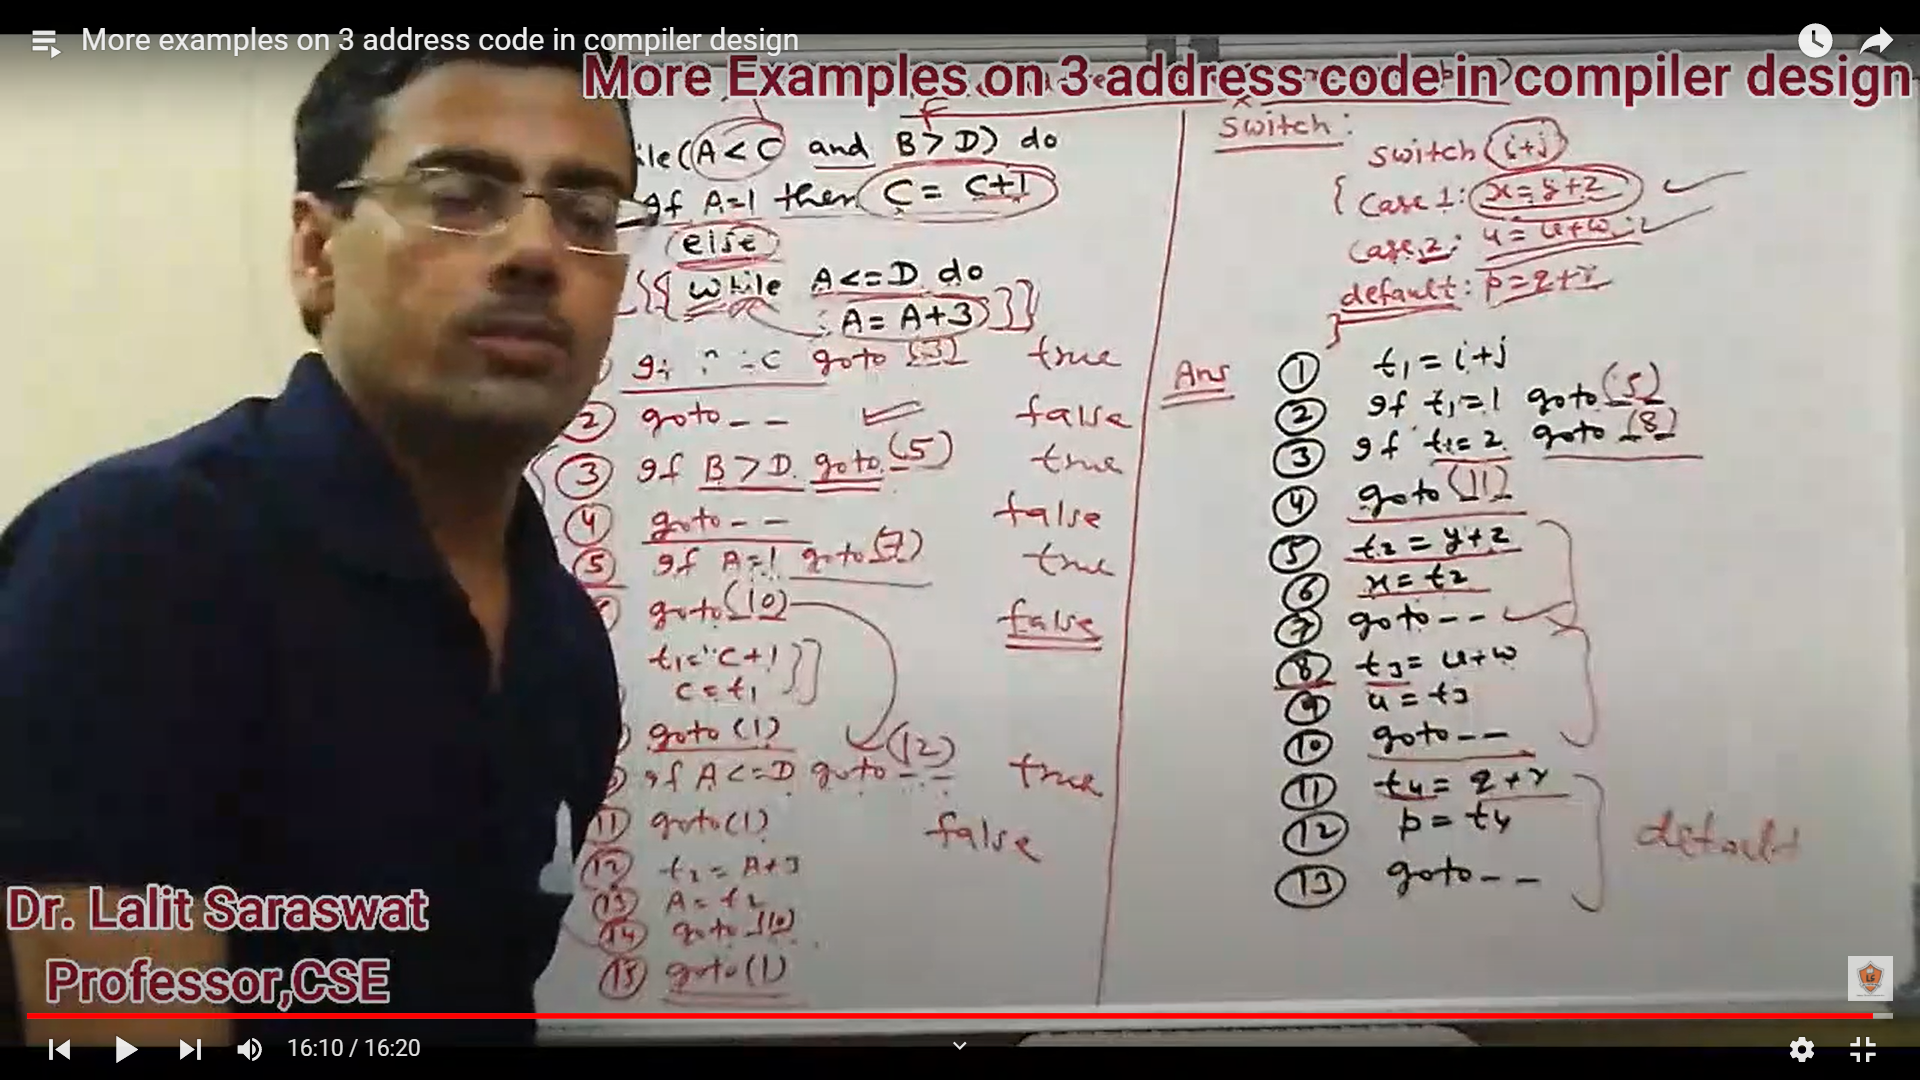 More examples on 3 address code in compiler design
More Examples on 3 address code in compiler design
ile(A<C and B>D) do
If A=1 then C = C+1
else
{{ while A<=D do
A = A+3 }}
C goto (3) true
2 goto -- false
3 If B>D goto (5) true
4 goto -- false
5 If A=1 goto (7) true
goto (10) false
t1 = C+1
C = t1
goto (1)
If A<=D goto (12) true
11 goto (1) false
12 t2 = A+3
13 A = t2
14 goto (10)
15 goto (1)
Switch:
switch (i+j)
{ Case 1: x=y+z
Case 2: u=u+w
default: p=q+r
}
Ans
1 t1 = i+j
2 If t1=1 goto (5)
3 If t1=2 goto (8)
4 goto (11)
5 t2 = y+z
6 x = t2
7 goto --
8 t3 = u+w
9 u = t3
10 goto --
11 t4 = q+r
12 p = t4
13 goto --
default
Dr. Lalit Saraswat
Professor,CSE
16:10 / 16:20